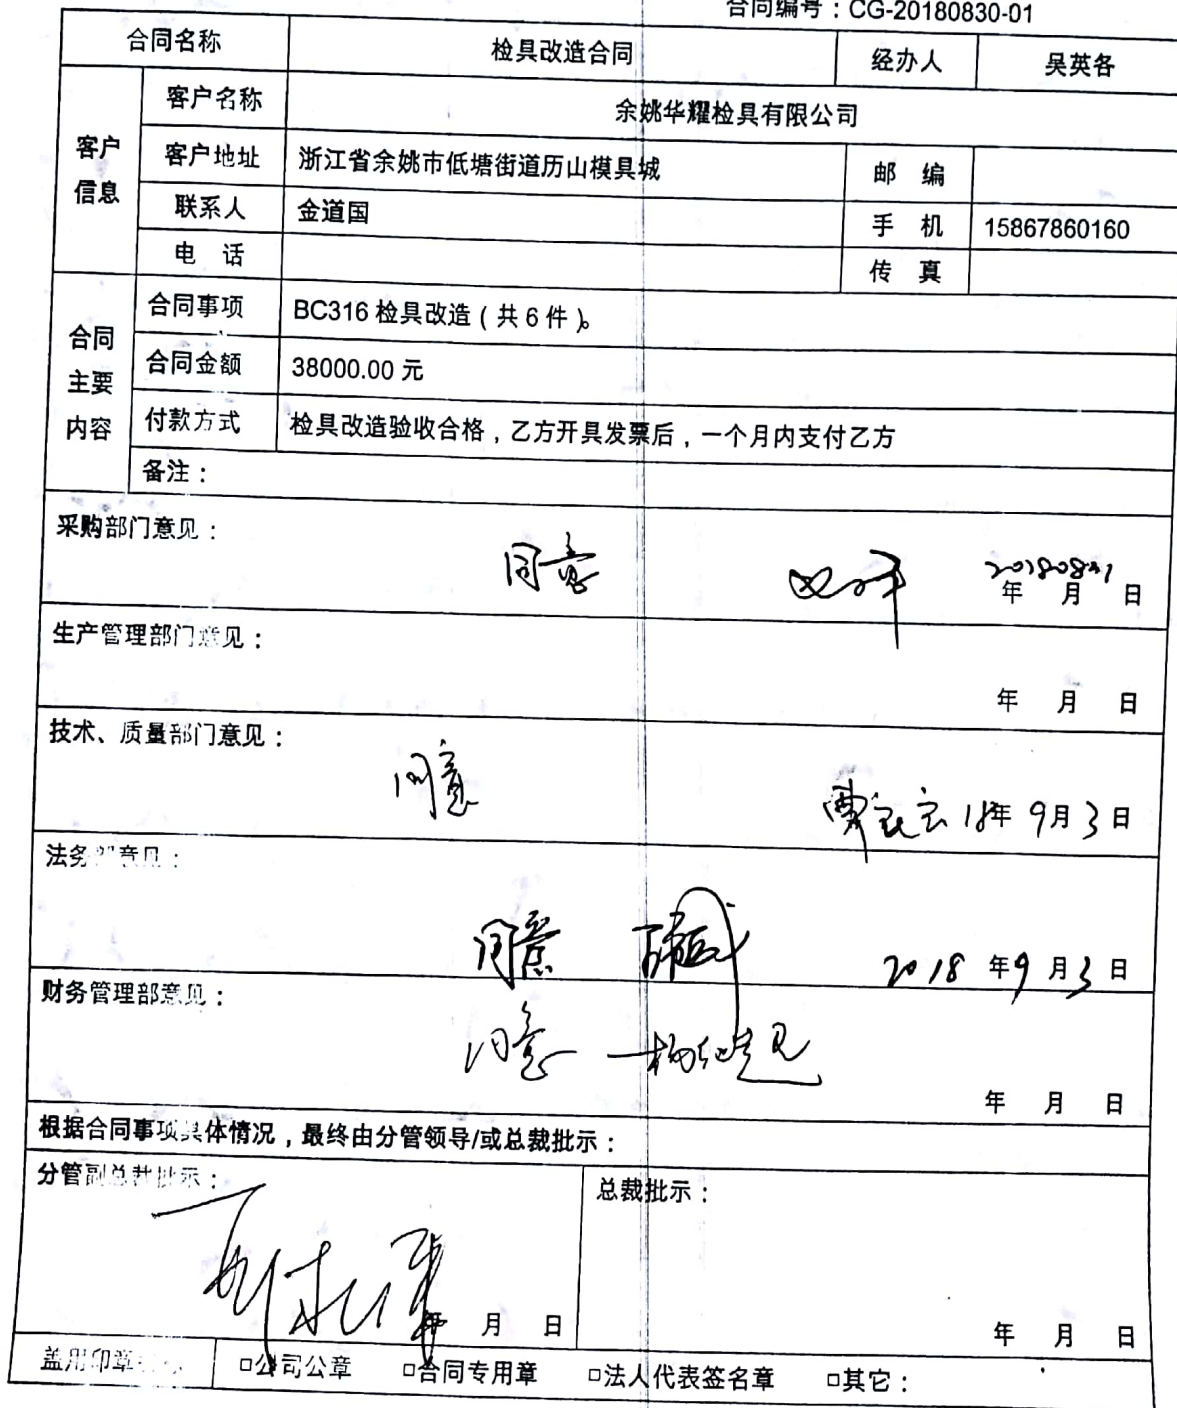 合同编号：CG-20180830-01
合同名称 检具改造合同 经办人 吴英各
客户信息 客户名称 余姚华耀检具有限公司
客户地址 浙江省余姚市低塘街道历山模具城 邮 编
联系人 金道国 手 机 15867860160
电 话 传 真
合同主要内容 合同事项 BC316 检具改造（共 6 件）。
合同金额 38000.00 元
付款方式 检具改造验收合格，乙方开具发票后，一个月内支付乙方
备注：
采购部门意见：
同意 20180831
年 月 日
生产管理部门意见：
年 月 日
技术、质量部门意见：
同意 18年 9月 3日
法务部意见：
同意 2018 年 9 月 3 日
财务管理部意见：
同意
年 月 日
根据合同事项具体情况，最终由分管领导/或总裁批示：
分管副总裁批示： 总裁批示：
年 月 日 年 月 日
盖用印章 □公司公章 □合同专用章 □法人代表签名章 □其它：